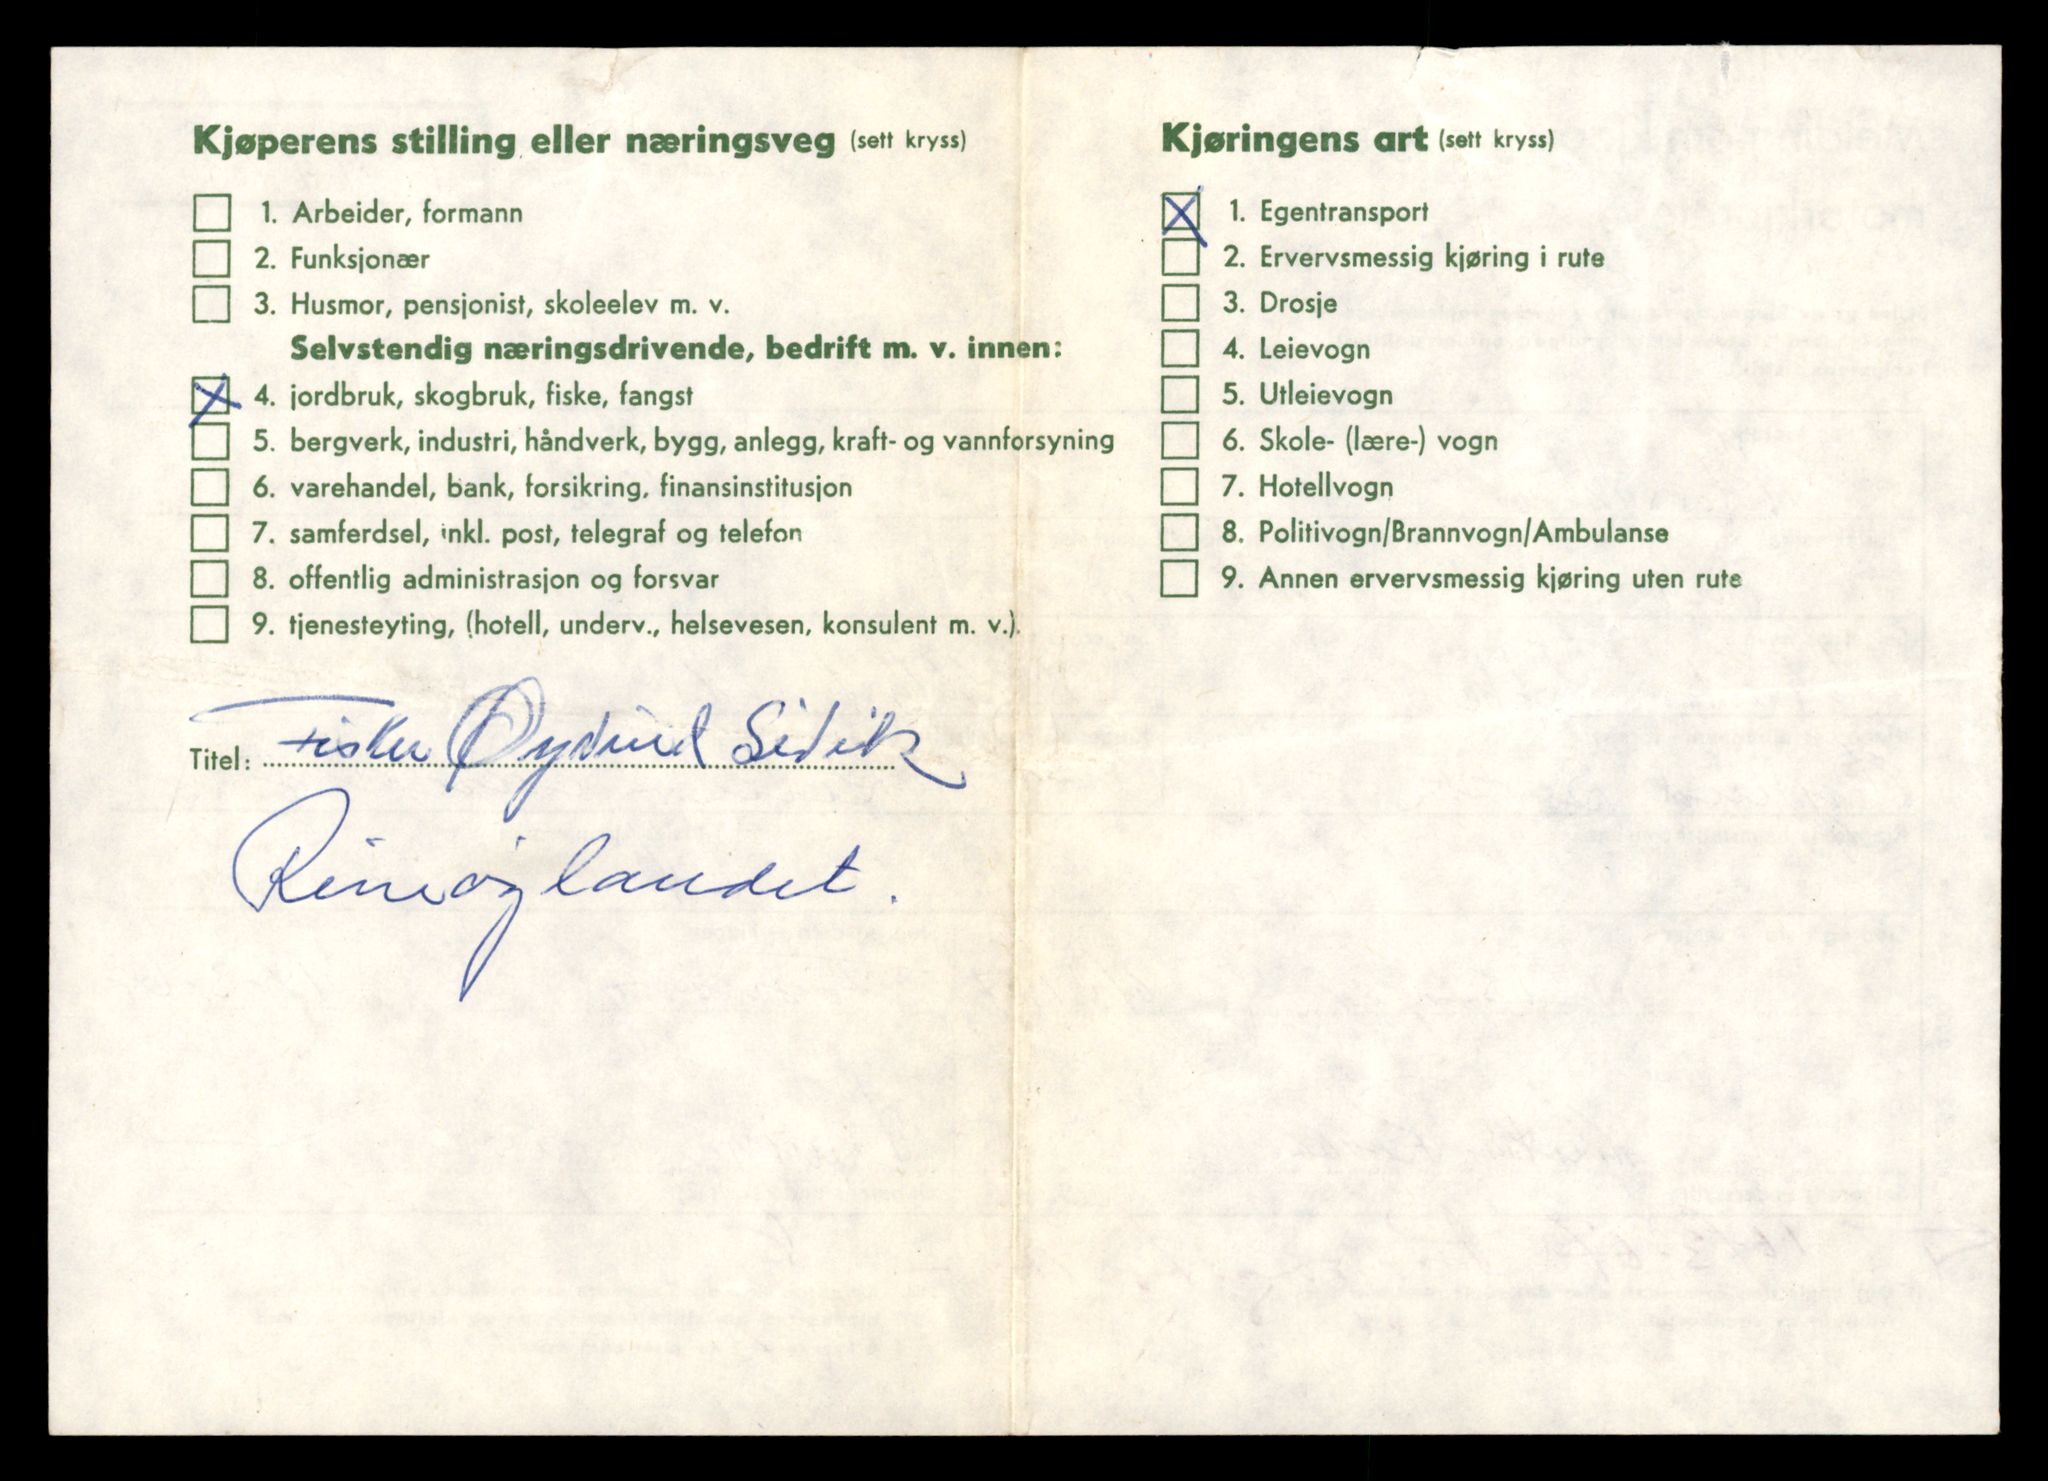 Kjøperens stilling eller næringsveg (sett kryss)
1. Arbeider, formann
2. Funksjonær
3. Husmor, pensjonist, skoleelev m. v.
Selvstendig næringsdrivende, bedrift m. v. innen:
4. jordbruk, skogbruk, fiske, fangst
5. bergverk, industri, håndverk, bygg, anlegg, kraft- og vannforsyning
6. varehandel, bank, forsikring, finansinstitusjon
7. samferdsel, inkl. post, telegraf og telefon
8. offentlig administrasjon og forsvar
9. tjenesteyting, (hotell, underv., helsevesen, konsulent m. v.).
Titel: Fisker Øydind
Kjøringens art (sett kryss)
1. Egentransport
2. Ervervsmessig kjøring i rute
3. Drosje
4. Leievogn
5. Utleievogn
6. Skole- (lære-) vogn
7. Hotellvogn
8. Politivogn/Brannvogn/Ambulanse
9. Annen ervervsmessig kjøring uten rute